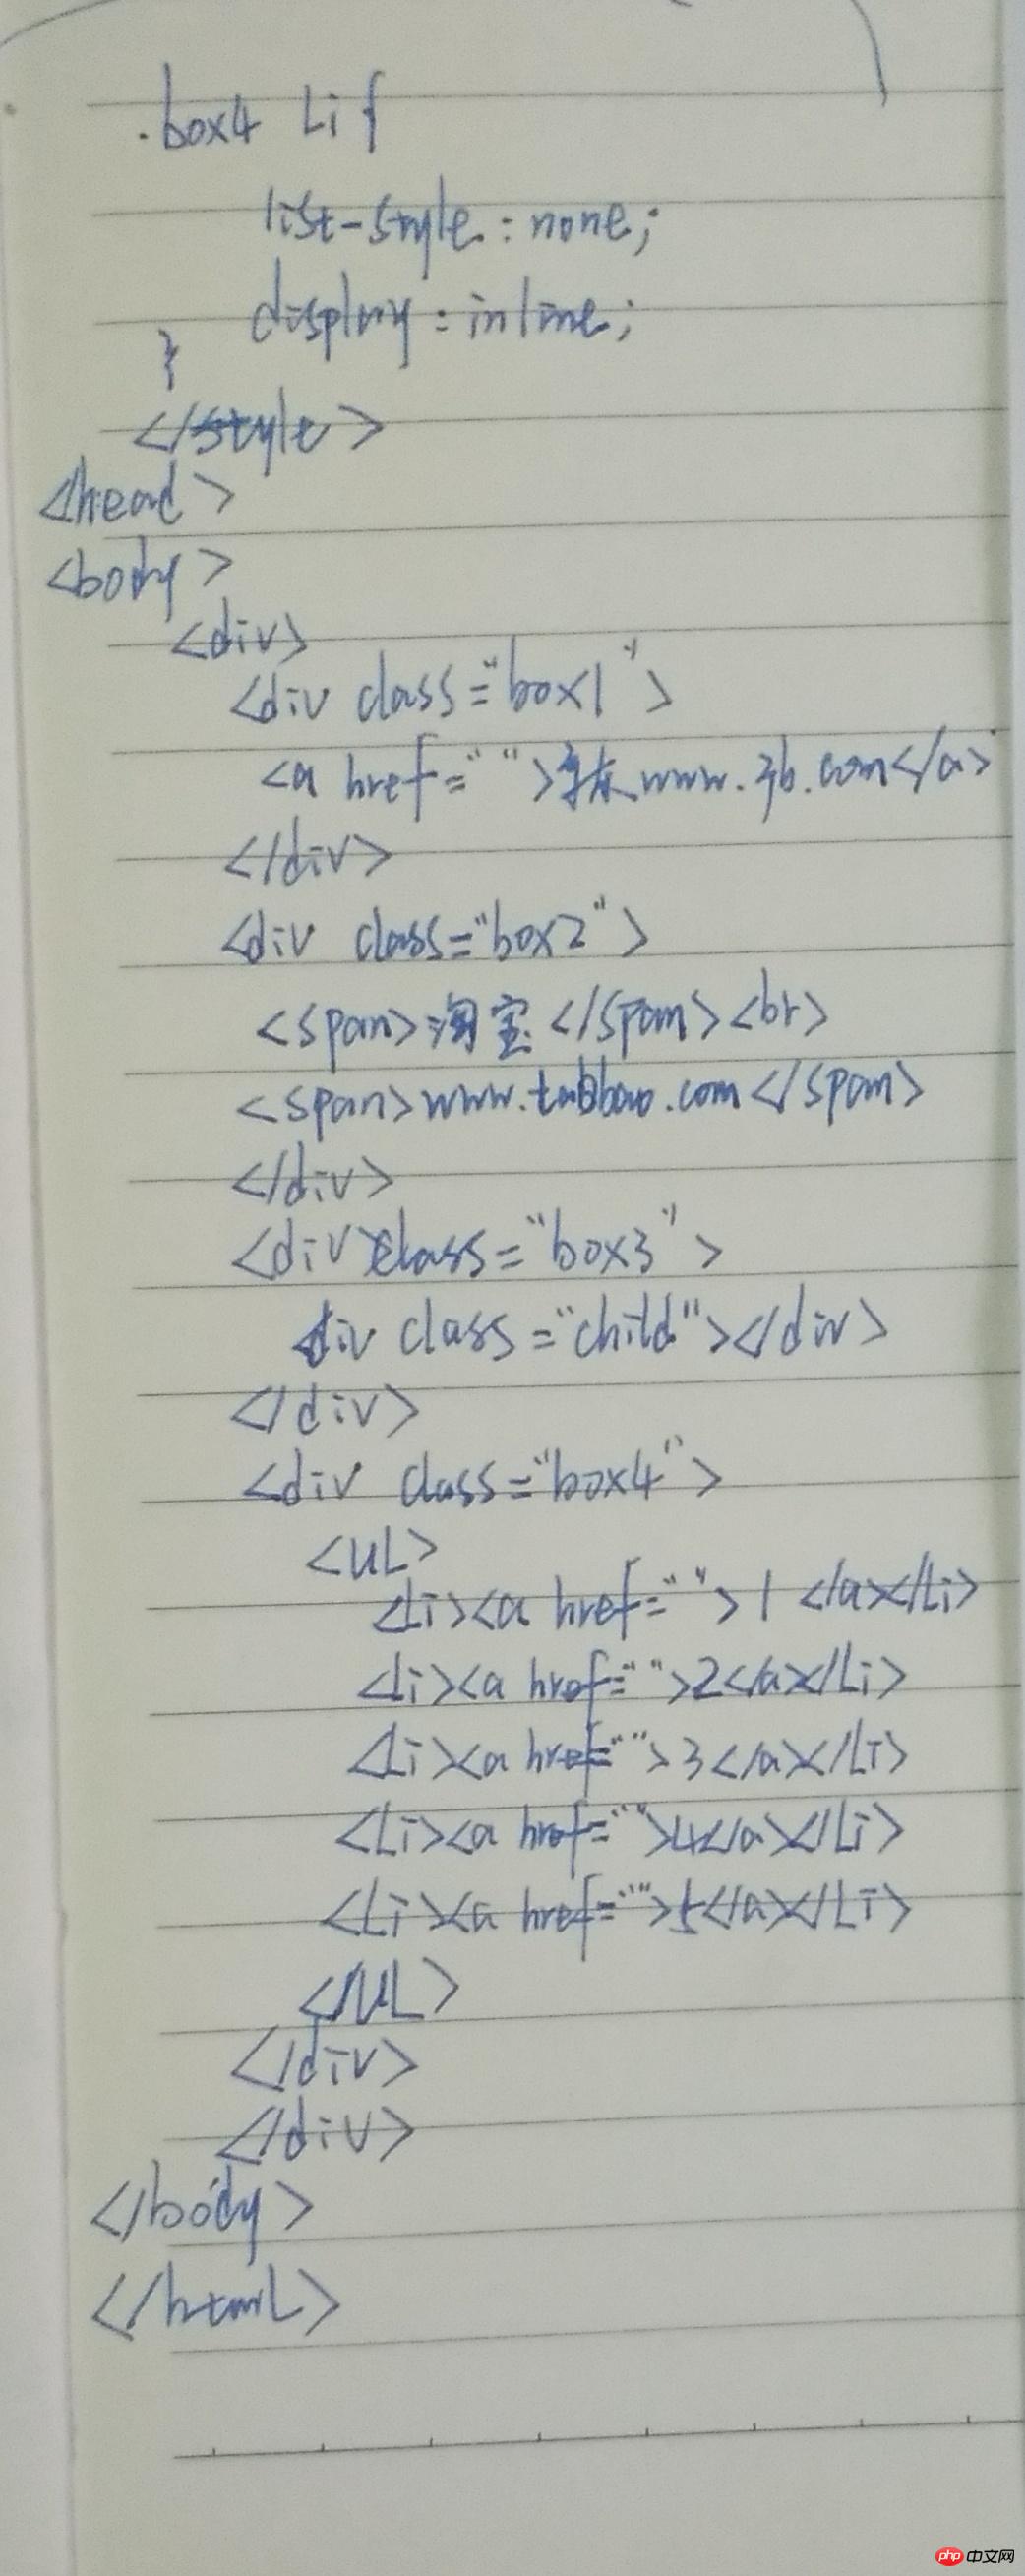 .box4 Li{
list-style:none;
display:inline;
}
</style>
</head>
<body>
<div>
<div class="box1">
<a href="">京东www.jb.com</a>
</div>
<div class="box2">
<span>淘宝</span><br>
<span>www.taobao.com</span>
</div>
<div class="box3">
div class="child"></div>
</div>
<div class="box4">
<UL>
<Li><a href="">1</a></Li>
<Li><a href="">2</a></Li>
<Li><a href="">3</a></Li>
<Li><a href="">4</a></Li>
<Li><a href="">5</a></Li>
</UL>
</div>
</div>
</body>
</html>
php中文网